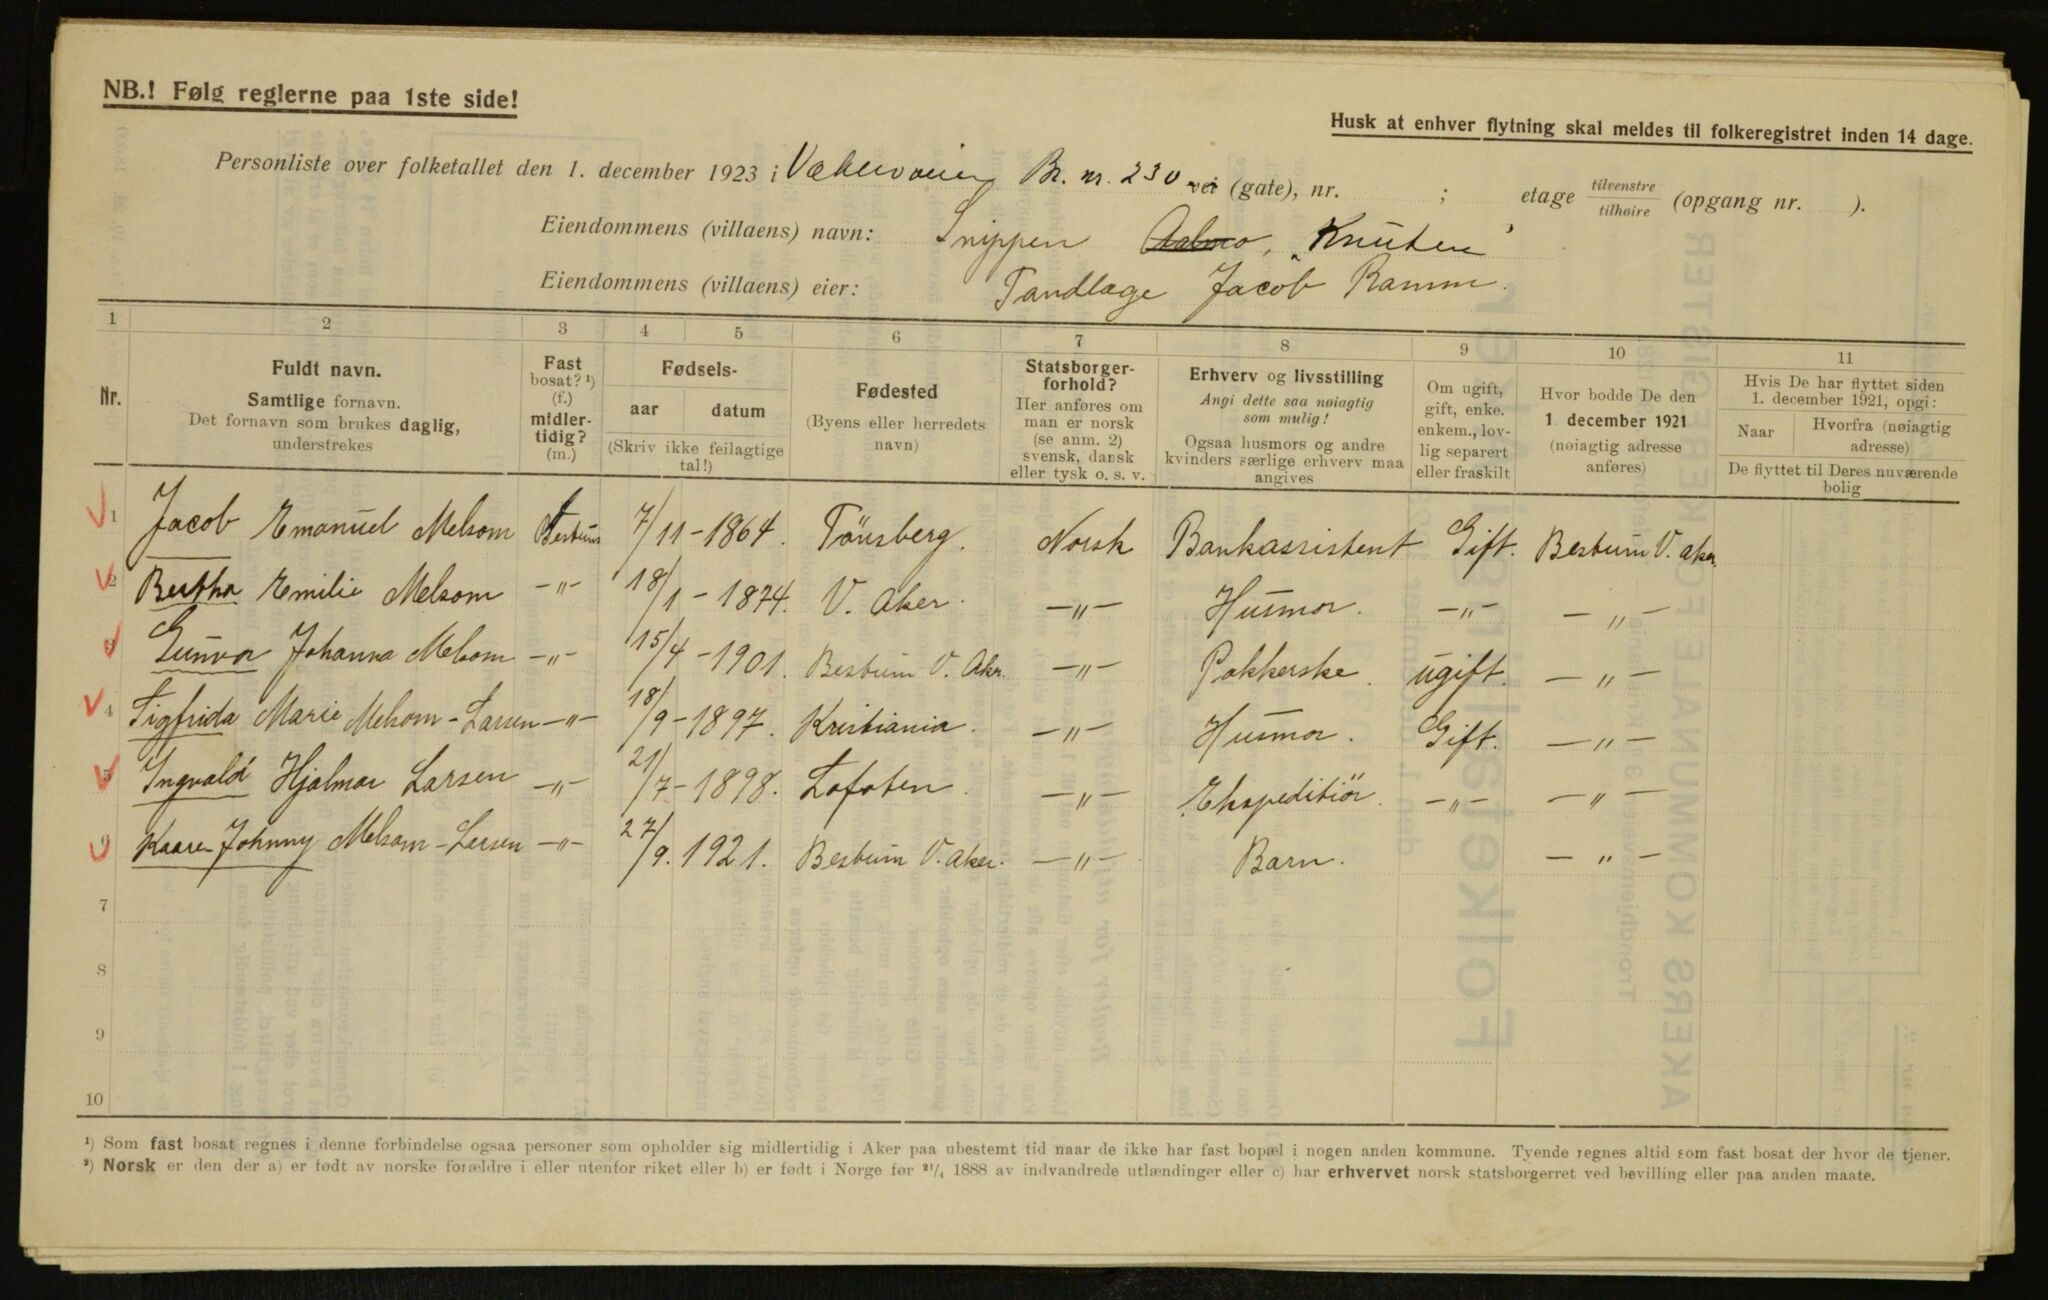 NB.! Følg reglerne paa 1ste side!
Husk at enhver flytning skal meldes til folkeregistret inden 14 dage.
Personliste over folketallet den 1. december 1923 i Vækerøveien Br. nr. 230 vei (gate), nr. ; etage tilvenstre / tilhøire (opgang nr. ).
Eiendommens (villaens) navn: Snippen Aalmo, "Knuten"
Eiendommens (villaens) eier: Tandlæge Jacob Ramm.
1 2 3 4 5 6 7 8 9 10 11
Nr.
Fuldt navn.
Samtlige fornavn.
Det fornavn som brukes daglig,
understrekes
Fast
bosat? ¹)
(f.)
midler-
tidig?
(m.)
Fødsels-
aar datum
(Skriv ikke feilagtige
tal!)
Fødested
(Byens eller herredets
navn)
Statsborger-
forhold?
Her anføres om
man er norsk
(se anm. 2)
svensk, dansk
eller tysk o. s. v.
Erhverv og livsstilling
Angi dette saa nøiagtig
som mulig!
Ogsaa husmors og andre
kvinders særlige erhverv maa
angives
Om ugift,
gift, enke.
enkem., lov-
lig separert
eller fraskilt
Hvor bodde De den
1. december 1921
(nøiagtig adresse
anføres)
Hvis De har flyttet siden
1. december 1921, opgi:
Naar Hvorfra (nøiagtig
adresse)
De flyttet til Deres nuværende
bolig
1 Jacob Emanuel Melsom Bestum 7/11-1864. Tönsberg. Norsk Bankassistent Gift. Bestum V. Aker.
2 Bertha Emilie Melsom -"- 18/1-1874. V. Aker. -"- Husmor. -"- -"-
3 Gunvor Johanna Melsom -"- 15/4-1901. Bestum V. Aker. -"- Pakkerske. ugift. -"-
4 Sigfrida Marie Melsom-Larsen -"- 18/9-1897. Kristiania. -"- Husmor. Gift. -"-
5 Ingvald Hjalmar Larsen -"- 21/7-1898. Lofoten. -"- Ekspeditiör. -"- -"-
6 Kaare Johnny Melsom-Larsen -"- 27/9. 1921. Bestum V. Aker. -"- Barn. -"-
7
8
9
10
¹) Som fast bosat regnes i denne forbindelse ogsaa personer som opholder sig midlertidig i Aker paa ubestemt tid naar de ikke har fast bopæl i nogen anden kommune. Tyende regnes altid som fast bosat der hvor de tjener.
²) Norsk er den der a) er født av norske forældre i eller utenfor riket eller b) er født i Norge før ²¹/₄ 1888 av indvandrede utlændinger eller c) har erhvervet norsk statsborgerret ved bevilling eller paa anden maate.